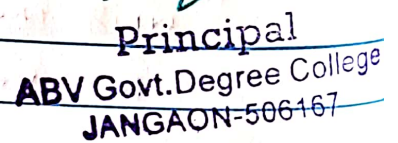 Principal
ABV Govt.Degree College
JANGAON-506167